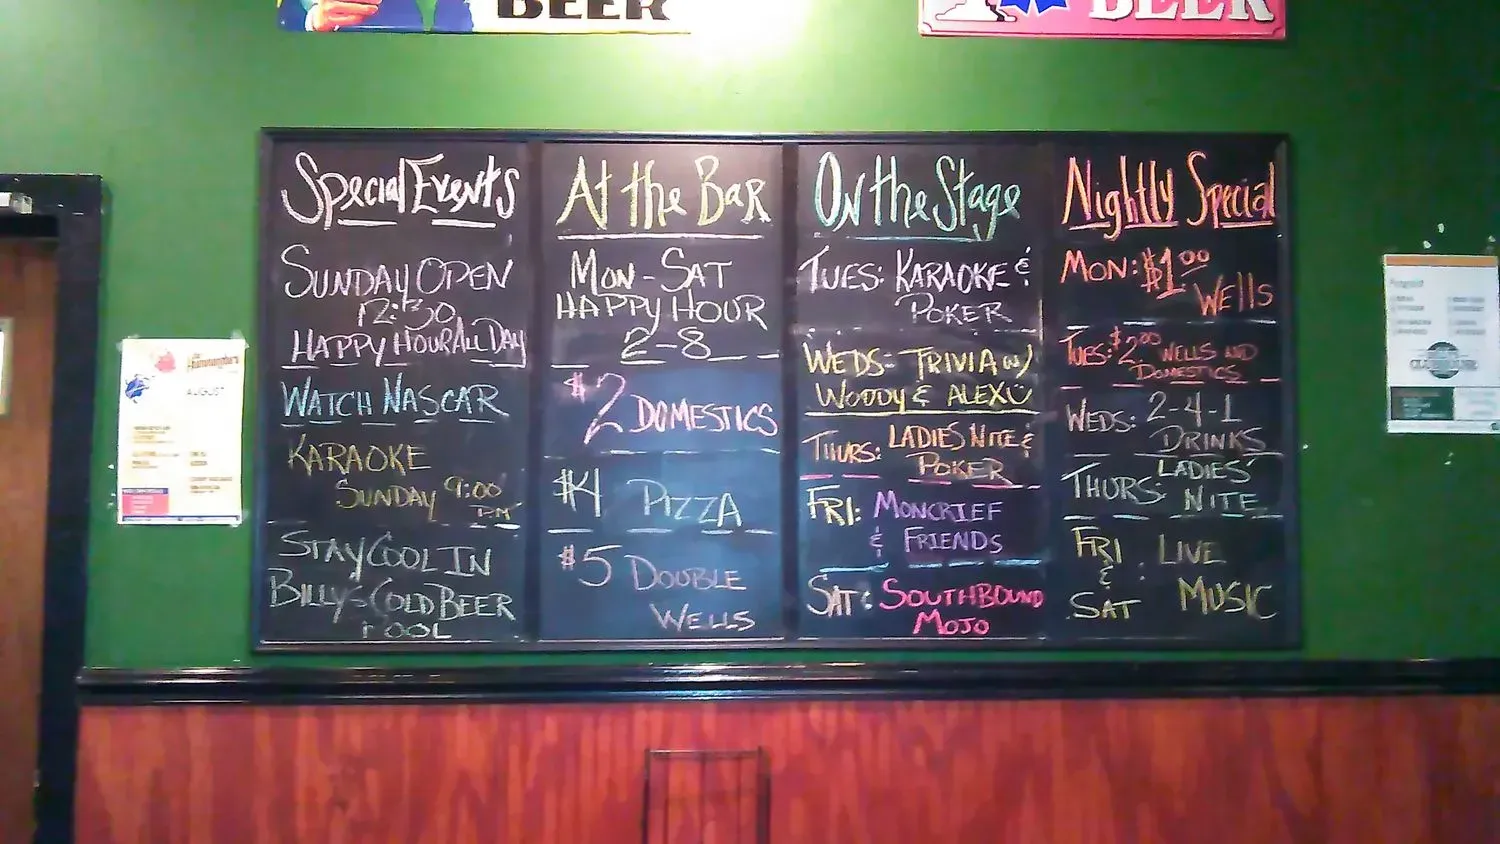 BEER
BEER
Special Events
SUNDAY OPEN
12:30
HAPPY HOUR ALL DAY
WATCH NASCAR
KARAOKE
SUNDAY 9:00
PM
STAY COOL IN
BILLY'S COLD BEER
POOL
AT the BAR
MON - SAT
HAPPY HOUR
2-8
$2 DOMESTICS
$4 PIZZA
$5 DOUBLE
WELLS
ON the Stage
TUES: KARAOKE &
POKER
WEDS- TRIVIA W/
WOODY & ALEX
THURS: LADIES NITE &
POKER
FRI: MONCRIEF
& FRIENDS
SAT: SOUTHBOUND
MOJO
Nightly Special
MON: $1.00
WELLS
TUES: $2.00 WELLS AND
DOMESTICS
WEDS: 2-4-1
DRINKS
THURS: LADIES'
NITE
FRI LIVE
&
SAT MUSIC
AUGUST